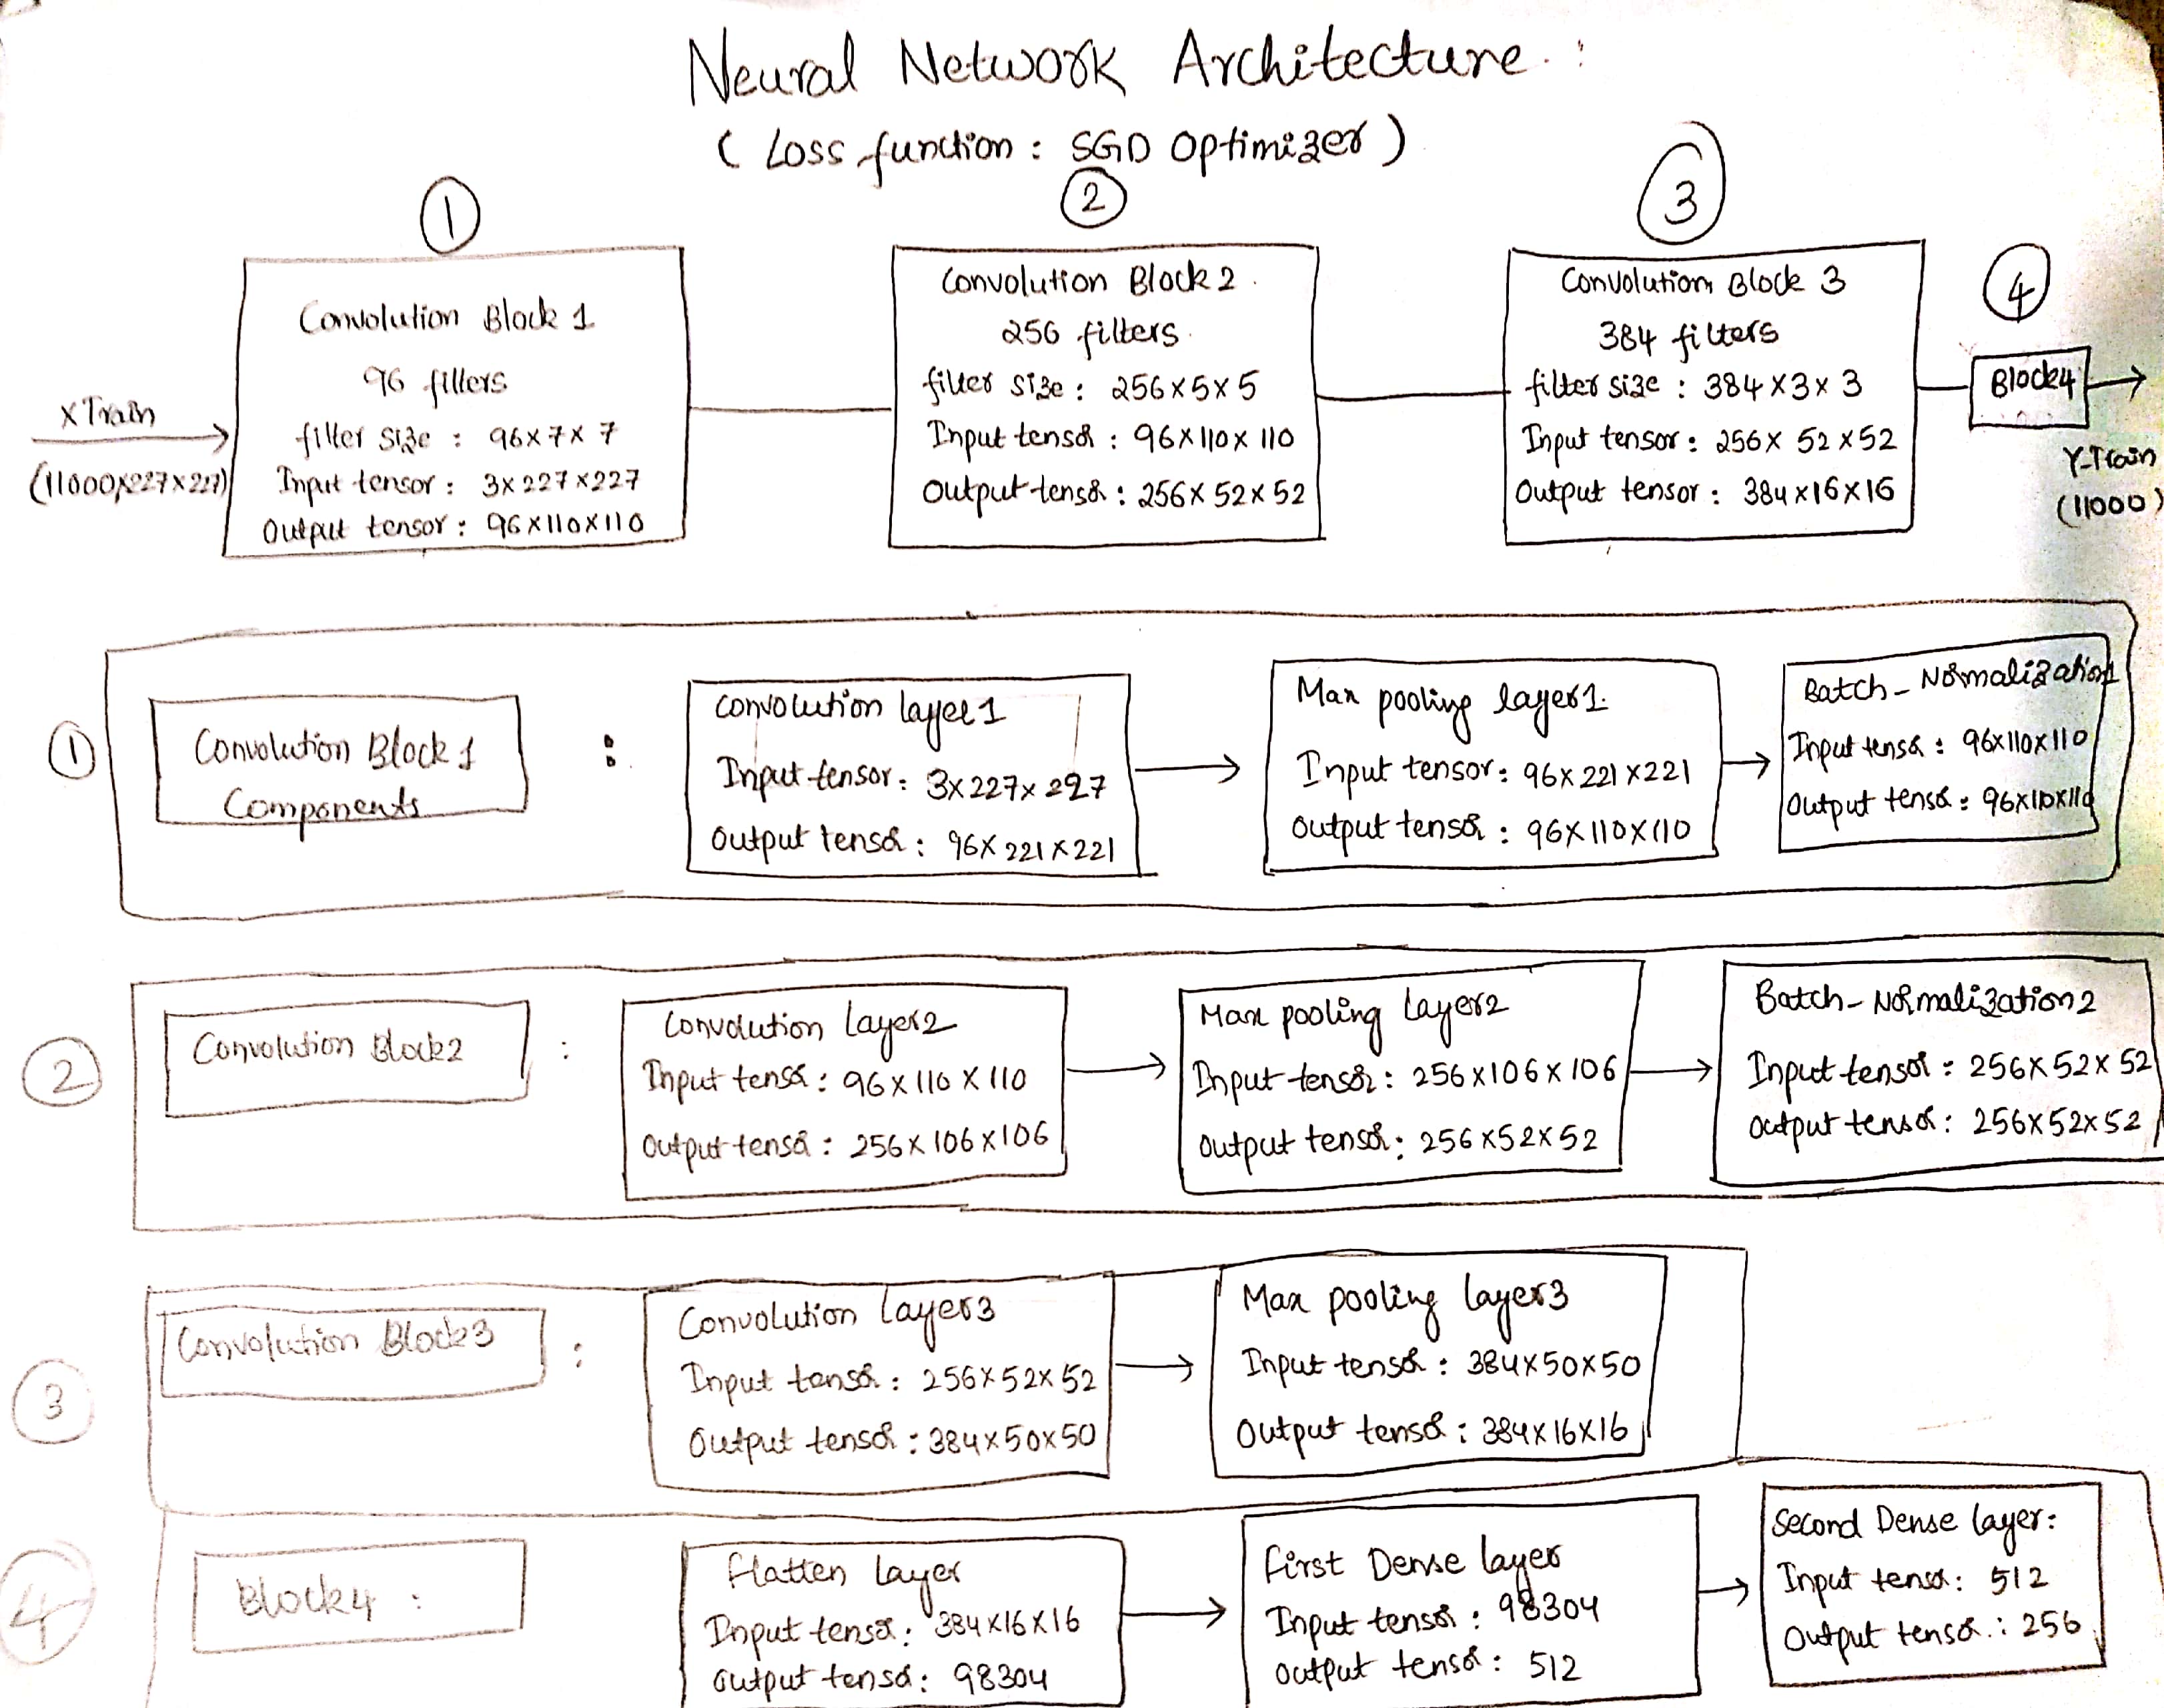 Neural Network Architecture :
( Loss function : SGD Optimizer )
1
2
3
4
Convolution Block 1
96 filters
filter size : 96x7x7
Input tensor : 3x227x227
Output tensor : 96x110x110
X Train
(11000x227x227)
Convolution Block 2
256 filters
filter size : 256x5x5
Input tensor : 96x110x110
Output tensor : 256x52x52
Convolution Block 3
384 filters
filter size : 384x3x3
Input tensor : 256x52x52
Output tensor : 384x16x16
Block4
Y-Train
(11000)
1
Convolution Block 1
Components
:
Convolution layer1
Input tensor : 3x227x227
Output tensor : 96x221x221
Max pooling layer1.
Input tensor : 96x221x221
Output tensor : 96x110x110
Batch-Normalization1
Input tensor : 96x110x110
Output tensor : 96x110x110
2
Convolution Block2
:
Convolution Layer2
Input tensor : 96x110x110
Output tensor : 256x106x106
Max pooling Layer2
Input tensor : 256x106x106
Output tensor : 256x52x52
Batch-Normalization2
Input tensor : 256x52x52
Output tensor : 256x52x52
3
Convolution Block3
:
Convolution Layer3
Input tensor : 256x52x52
Output tensor : 384x50x50
Max pooling layer3
Input tensor : 384x50x50
Output tensor : 384x16x16
4
Block4 :
Flatten Layer
Input tensor : 384x16x16
Output tensor : 98304
First Dense layer
Input tensor : 98304
Output tensor : 512
Second Dense layer:
Input tensor : 512
Output tensor : 256